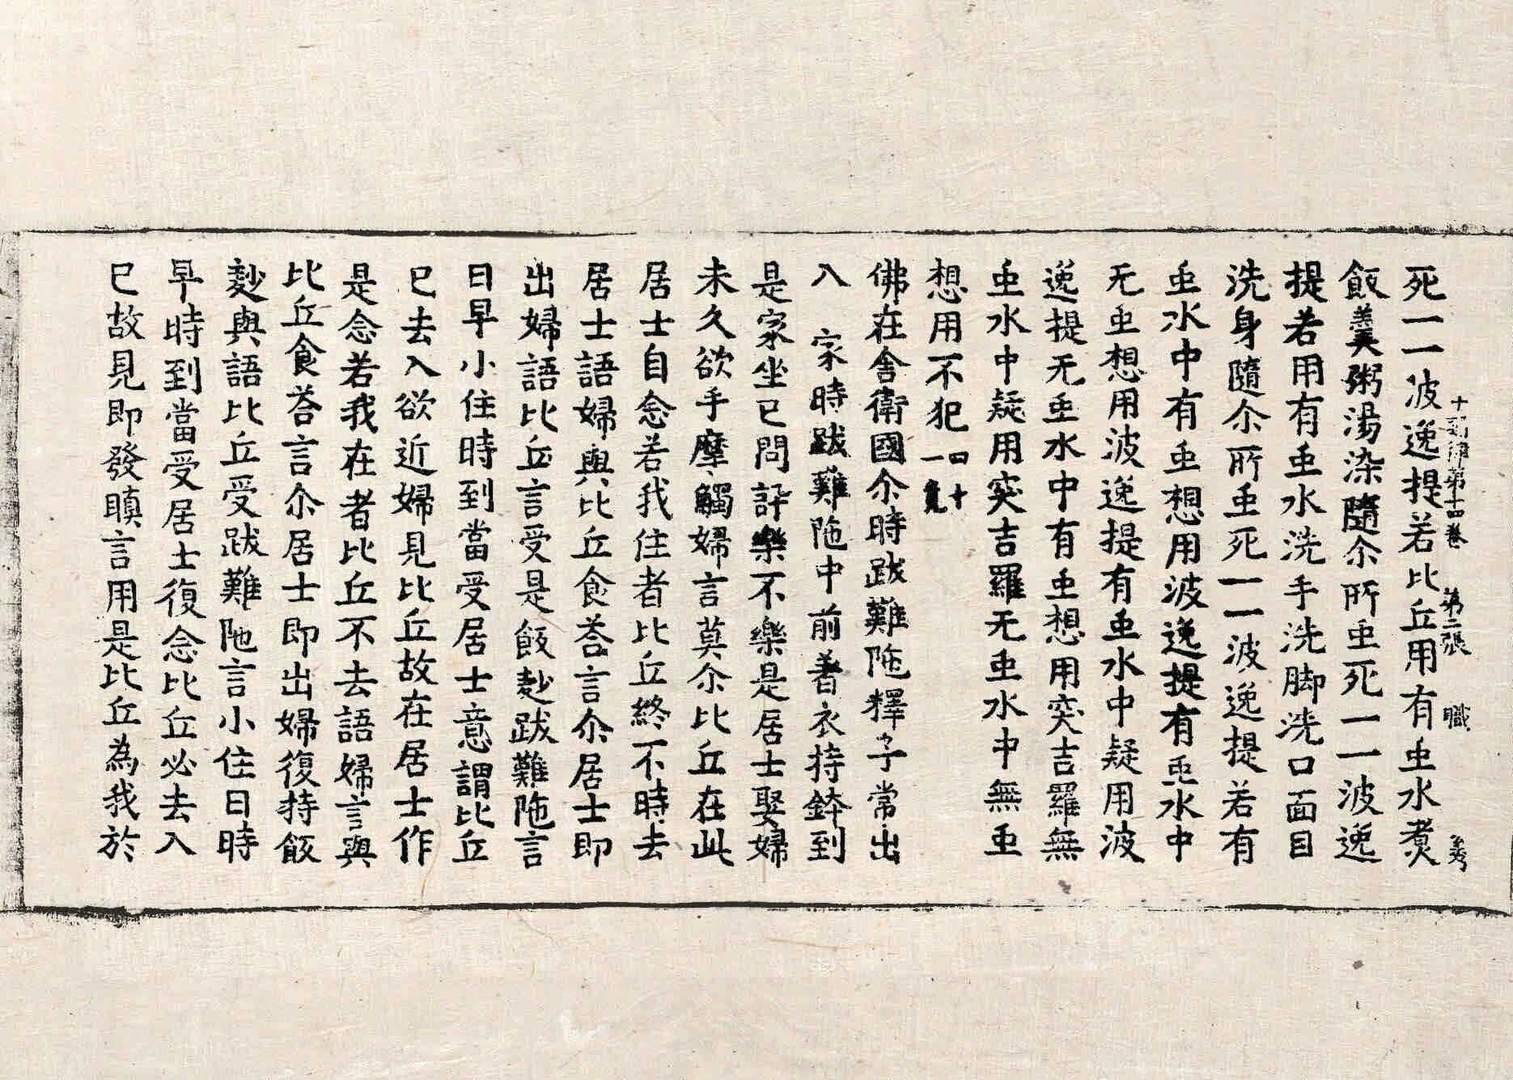 十誦律第十四卷　第二張　職
死一一波逸提若比丘用有虫水煮
飯羹粥湯染隨尒所虫死一一波逸
提若用有虫水洗手洗脚洗口面目
洗身隨尒所虫死一一波逸提若有
虫水中有虫想用波逸提有虫水中
无虫想用波逸提有虫水中疑用波
逸提无虫水中有虫想用突吉羅無
虫水中疑用突吉羅无虫水中無虫
想用不犯四十一竟
佛在舍衛國尒時跋難陁釋子常出
入　家時跋難陁中前著衣持鉢到
是家坐已問訊樂不樂是居士娶婦
未久欲手摩觸婦言莫尒比丘在此
居士自念若我住者比丘終不時去
居士語婦與比丘食荅言尒居士即
出婦語比丘言受是飯麨跋難陁言
日早小住時到當受居士意謂比丘
已去入欲近婦見比丘故在居士作
是念若我在者比丘不去語婦言與
比丘食荅言尒居士即出婦復持飯
麨與語比丘受跋難陁言小住日時
早時到當受居士復念比丘必去入
已故見即發瞋言用是比丘為我於